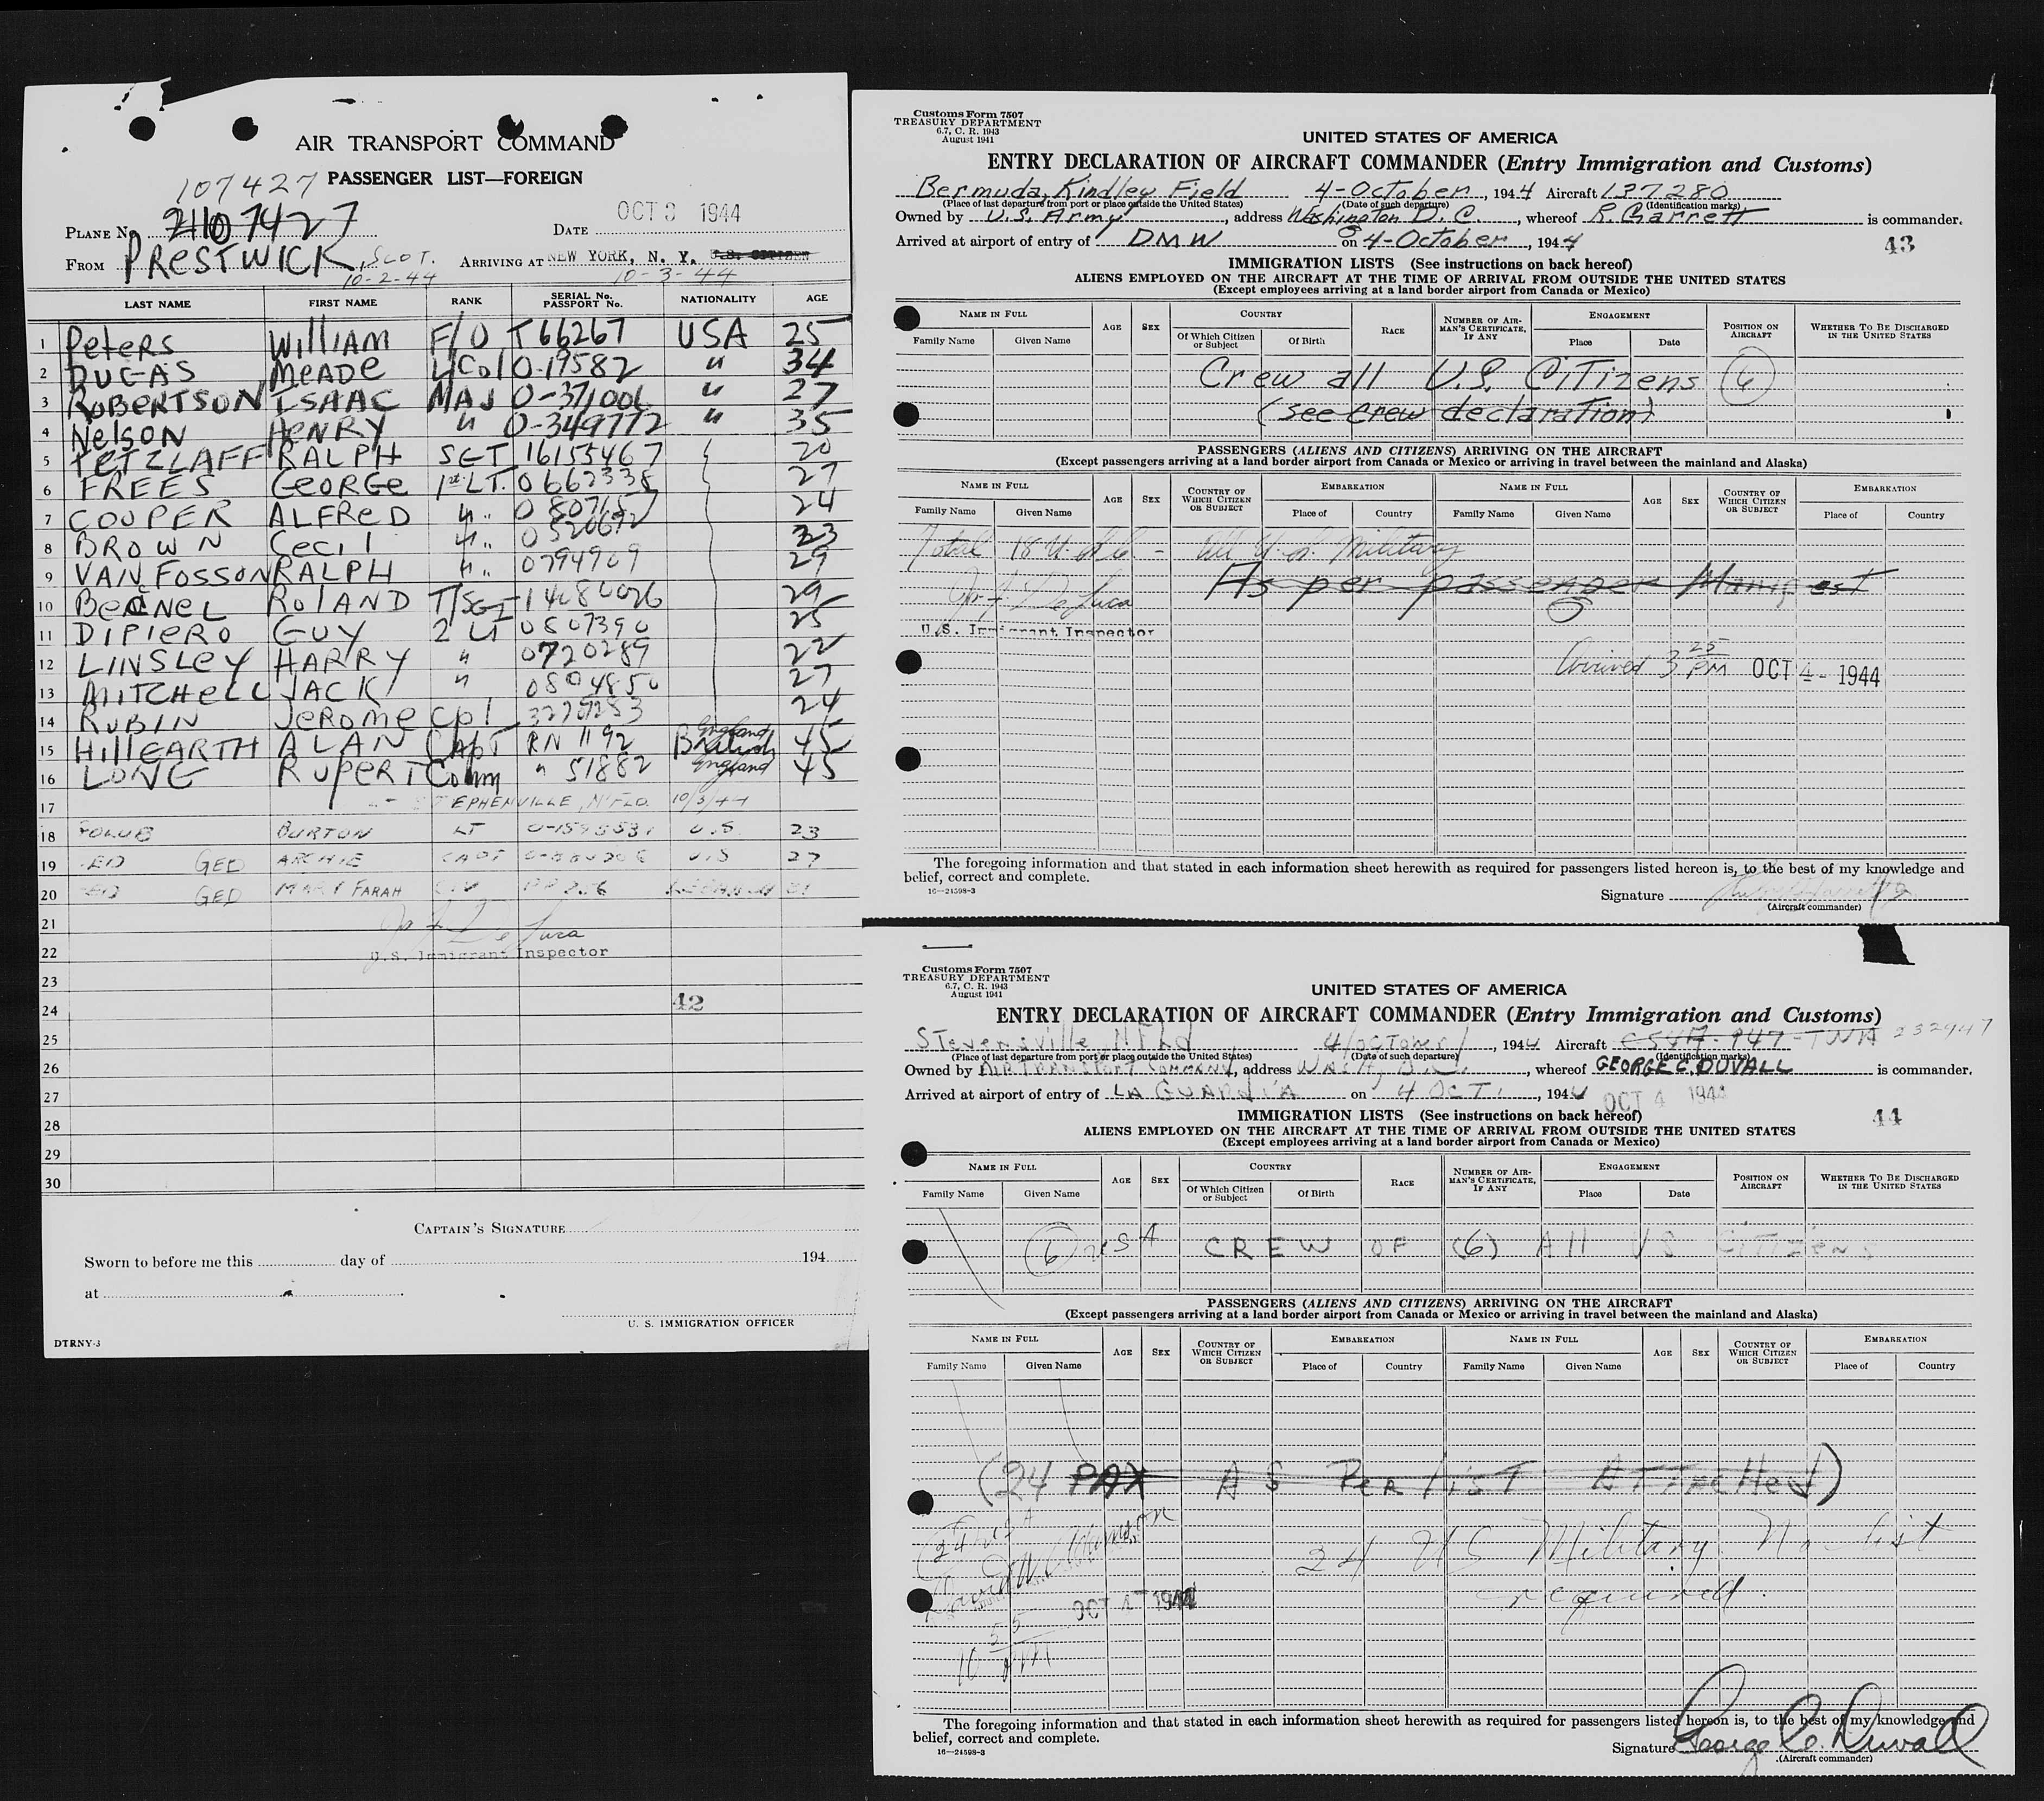 AIR TRANSPORT COMMAND
107427 PASSENGER LIST—FOREIGN
PLANE No. 107427 DATE OCT 3 1944
FROM PRESTWICK, SCOT. ARRIVING AT NEW YORK, N. Y. U.S. CITIZEN
10-2-44 10-3-44
LAST NAME FIRST NAME RANK SERIAL No. PASSPORT No. NATIONALITY AGE
1 PETERS WILLIAM F/O T66267 USA 25
2 DUGAS MEADE Lt Col 0-19582 " 34
3 ROBERTSON ISAAC MAJ 0-371006 " 27
4 NELSON HENRY " 0-349772 " 35
5 TETZLAFF RALPH SGT 16155467 20
6 FREES GEORGE 1st LT. 0662338 27
7 COOPER ALFRED " 080765 24
8 BROWN CECIL " 0520692 23
9 VAN FOSSON RALPH " 0794909 29
10 ROLAND T/SGT 14086026 29
11 DIPIERO GUY 2 LT 0807390 25
12 LINSLEY HARRY " 0720289 22
13 MITCHELL JACK " 0804850 27
14 RUBIN JEROME Cpl 24
15 HILLEARTH ALAN CAPT RN 1192 England British 45
16 LONG RUPERT Comm " 51882 England 45
17 STEPHENVILLE, N'FLD. 10/3/44
18 BURTON LT U.S. 23
19 GED ARCHIE CAPT U.S 27
20 GED MARY FARAH CIV
21
22 U.S. Immigrant Inspector
23
24 42
25
26
27
28
29
30
CAPTAIN'S SIGNATURE
Sworn to before me this day of 194
at
U. S. IMMIGRATION OFFICER
DTRNY-3
Customs Form 7507
TREASURY DEPARTMENT
6.7, C. R. 1943
August 1941
UNITED STATES OF AMERICA
ENTRY DECLARATION OF AIRCRAFT COMMANDER (Entry Immigration and Customs)
Bermuda, Kindley Field 4-October, 1944 Aircraft L37280
(Place of last departure from port or place outside the United States) (Date of such departure) (Identification marks)
Owned by U.S. Army, address Washington D.C., whereof R. Garrett is commander.
Arrived at airport of entry of DMW on 4-October, 1944
43
IMMIGRATION LISTS (See instructions on back hereof)
ALIENS EMPLOYED ON THE AIRCRAFT AT THE TIME OF ARRIVAL FROM OUTSIDE THE UNITED STATES
(Except employees arriving at a land border airport from Canada or Mexico)
NAME IN FULL AGE SEX COUNTRY RACE NUMBER OF AIRMAN'S CERTIFICATE, IF ANY ENGAGEMENT POSITION ON AIRCRAFT WHETHER TO BE DISCHARGED IN THE UNITED STATES
Family Name Given Name Of Which Citizen or Subject Of Birth Place Date
Crew all U.S. Citizens (6)
(see crew declaration)
PASSENGERS (ALIENS AND CITIZENS) ARRIVING ON THE AIRCRAFT
(Except passengers arriving at a land border airport from Canada or Mexico or arriving in travel between the mainland and Alaska)
NAME IN FULL AGE SEX COUNTRY OF WHICH CITIZEN OR SUBJECT EMBARKATION NAME IN FULL AGE SEX COUNTRY OF WHICH CITIZEN OR SUBJECT EMBARKATION
Family Name Given Name Place of Country Family Name Given Name Place of Country
Total 18 U.S.C. - All U.S. Military
As per passenger Manifest
De Luca
U.S. Immigrant Inspector
Arrived 3 25 PM OCT 4 - 1944
The foregoing information and that stated in each information sheet herewith as required for passengers listed hereon is, to the best of my knowledge and
belief, correct and complete.
16—24598-3
Signature
(Aircraft commander)
Customs Form 7507
TREASURY DEPARTMENT
6.7, C. R. 1943
August 1941
UNITED STATES OF AMERICA
ENTRY DECLARATION OF AIRCRAFT COMMANDER (Entry Immigration and Customs)
Stevensville, NFLd 4/October/, 1944 Aircraft C54A-947-TWA 232947
(Place of last departure from port or place outside the United States) (Date of such departure) (Identification marks)
Owned by AIR TRANSPORT COMMAND, address WASH, D.C., whereof GEORGE C. DUVALL is commander.
Arrived at airport of entry of LA GUARDIA on 4 OCT, 1944 OCT 4 1944
44
IMMIGRATION LISTS (See instructions on back hereof)
ALIENS EMPLOYED ON THE AIRCRAFT AT THE TIME OF ARRIVAL FROM OUTSIDE THE UNITED STATES
(Except employees arriving at a land border airport from Canada or Mexico)
NAME IN FULL AGE SEX COUNTRY RACE NUMBER OF AIRMAN'S CERTIFICATE, IF ANY ENGAGEMENT POSITION ON AIRCRAFT WHETHER TO BE DISCHARGED IN THE UNITED STATES
Family Name Given Name Of Which Citizen or Subject Of Birth Place Date
(6) USA CREW OF (6) All US CITIZENS
PASSENGERS (ALIENS AND CITIZENS) ARRIVING ON THE AIRCRAFT
(Except passengers arriving at a land border airport from Canada or Mexico or arriving in travel between the mainland and Alaska)
NAME IN FULL AGE SEX COUNTRY OF WHICH CITIZEN OR SUBJECT EMBARKATION NAME IN FULL AGE SEX COUNTRY OF WHICH CITIZEN OR SUBJECT EMBARKATION
Family Name Given Name Place of Country Family Name Given Name Place of Country
(24 PAX AS PER LIST ATTACHED)
24 US Military No list
required.
OCT 4 1944
10 55 AM
The foregoing information and that stated in each information sheet herewith as required for passengers listed hereon is, to the best of my knowledge and
belief, correct and complete.
16—24598-3
Signature George C. Duvall
(Aircraft commander)